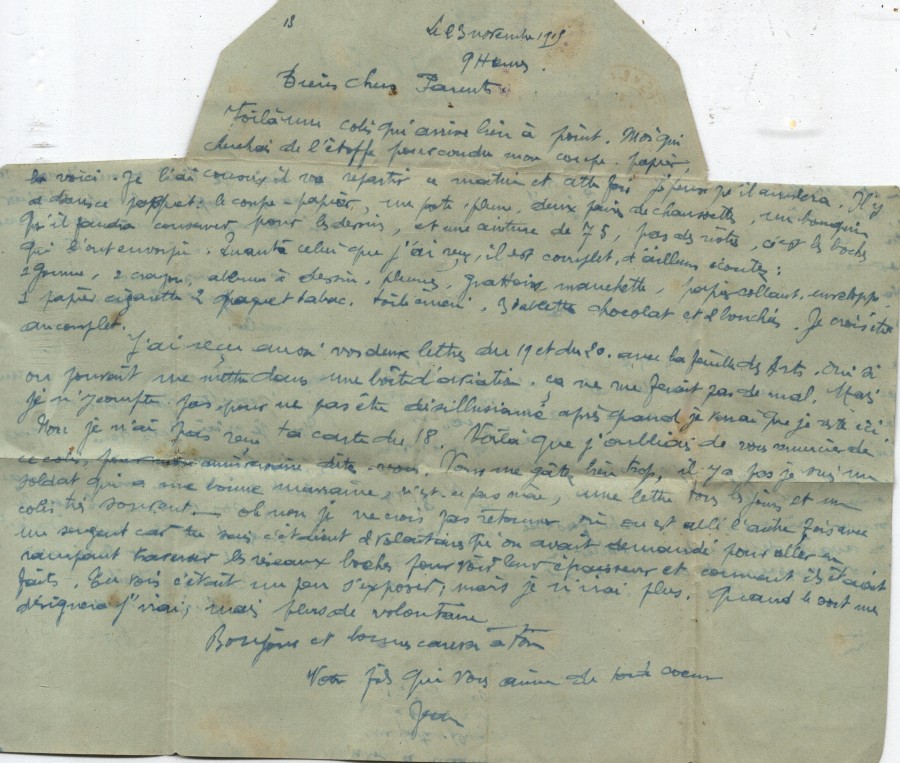 18
Le 23 novembre 1915
9 Heures.
Très chers Parents.
Voilà un colis qui arrive bien à point. Moi qui
cherchai de l'étoffe pour coudre mon coupe-papier,
la voici. Je l'ai cousu, il va repartir ce matin et cette fois j'espère qu'il arrivera. Il y
a dans ce paquet: le coupe-papier, un porte-plume, deux paires de chaussettes, un bouquin
qu'il faudra conserver pour les dessins, et une ceinture de 75, pas des nôtres, c'est les boches
qui l'ont envoyée. Quant à celui que j'ai reçu, il est complet, d'ailleurs écoutez:
2 gommes, 2 crayons, album à dessin, plumes, grattoirs, manchette, papier collant, enveloppe
1 papier cigarette 2 paquet tabac. 3 tablettes chocolat et 2 bouchées. Je crois être
au complet.
J'ai reçu aussi vos deux lettres du 19 et du 20. avec la feuille des Arts. Oui si
on pouvait me mettre dans une boîte d'aviation. ça ne me ferait pas de mal. Mais
je n'y compte pas pour ne pas être désillusionné après quand je verrai que je reste ici.
Non je n'ai pas reçu ta carte du 18. Voilà que j'oubliais de vous remercier de
ce colis, pour mon anniversaire dites-vous. Vous me gâtez bien trop, il y a pas je suis un
soldat qui a une bonne marraine, n'est-ce pas mère, une lettre tous les jours et un
colis très souvent. oh non je ne crois pas retourner où on est allé l'autre fois avec
un sergent car tu sais c'étaient 2 volontaires qu'on avait demandé pour aller en
rampant traverser les réseaux boches pour voir leur épaisseur et comment ils étaient
faits. Tu vois c'était un peu s'exposer, mais je n'irai plus. Quand le sort me
désignera j'irai, mais plus de volontaire
Bonjour et bonnes caresses à Tom
Votre fils qui vous aime de tout coeur
Jean